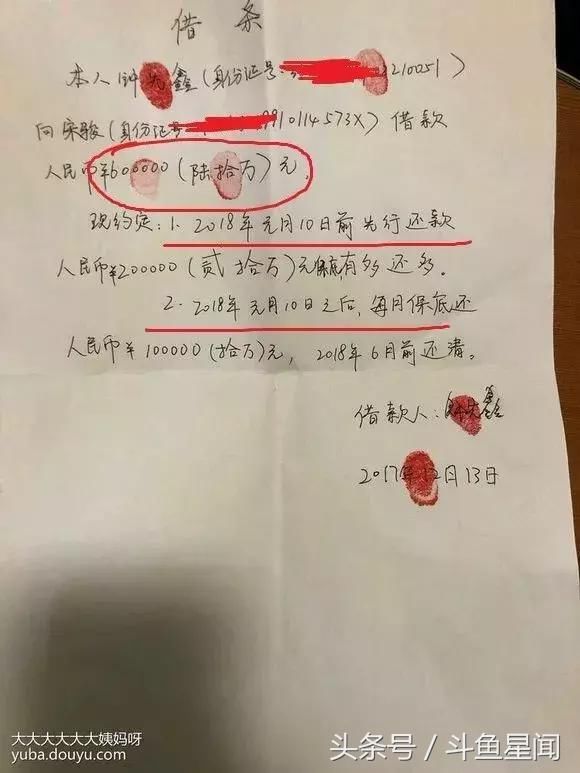 借 条
本人钟 鑫(身份证号: 210051)
向宋骏(身份证号 9910114573X)借款
人民币¥600000(陆拾万)元,
现约定:1. 2018年元月10日前先行还款
人民币¥200000(贰拾万)元保底,有多还多。
2. 2018年元月10日之后,每月保底还
人民币¥100000(拾万)元,2018年6月前还清。
借款人: 鑫
2017年12月13日
大大大大大大姨妈呀
yuba.douyu.com
头条号 / 斗鱼星闻